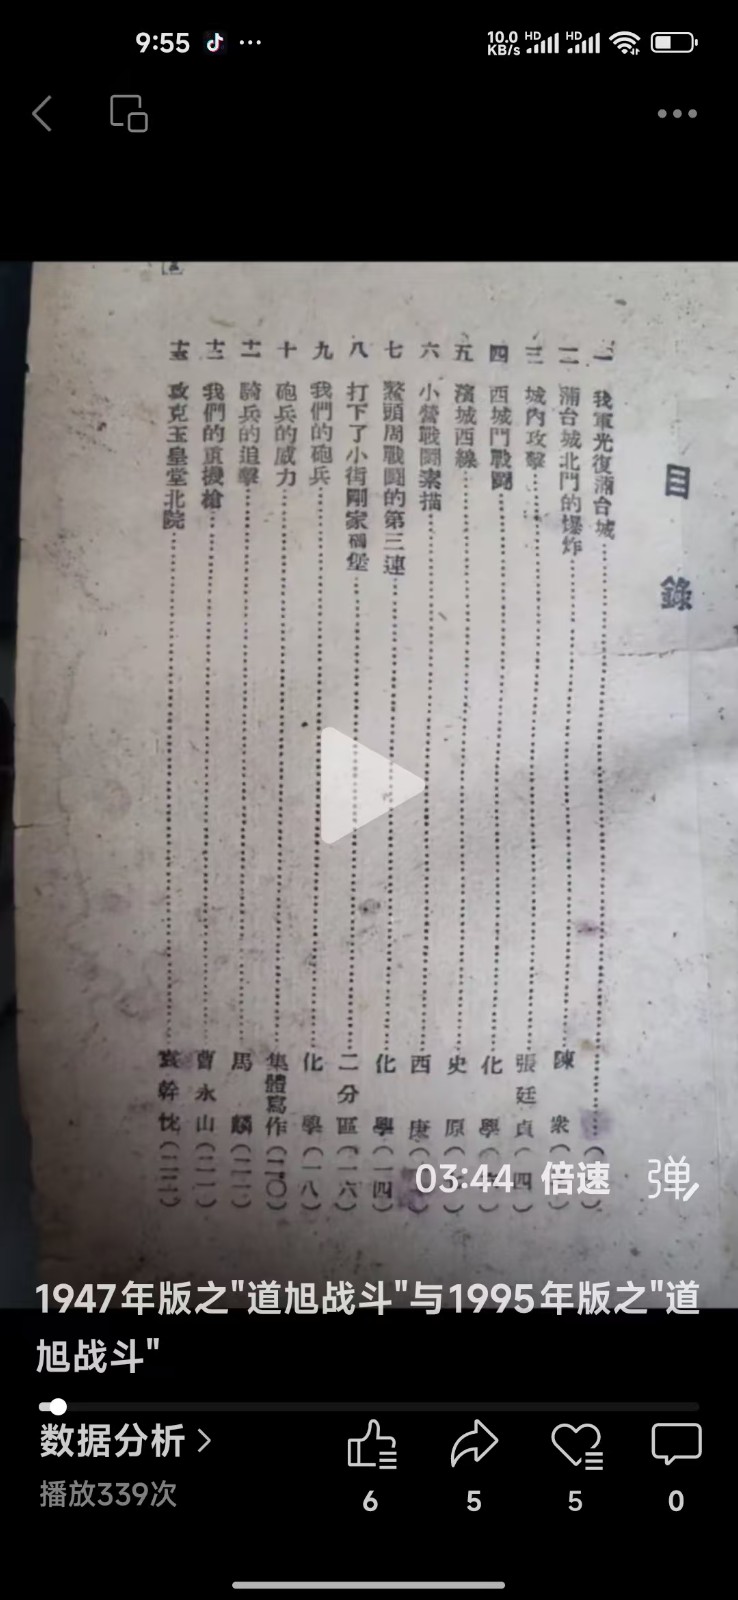 9:55
10.0 KB/s HD HD
目錄
一 我軍光復蒲台城
二 蒲台城北門的爆炸 陳衆
三 城內攻擊 張廷貞（四）
四 西城門戰鬪 化學
五 濱城西線 史原
六 小營戰鬪素描 西康
七 鰲頭周戰鬪的第三連 化學（一四）
八 打下了小街剛家碉堡 二分區（一六）
九 我們的砲兵 化學（一八）
十 砲兵的威力 集體寫作（二〇）
十一 騎兵的追擊 馬驎
十二 我們的重機槍 曹永山
十三 攻克玉皇堂北院 袁幹忱
03:44 倍速 弹
1947年版之"道旭战斗"与1995年版之"道
旭战斗"
数据分析
播放339次
6 5 5 0